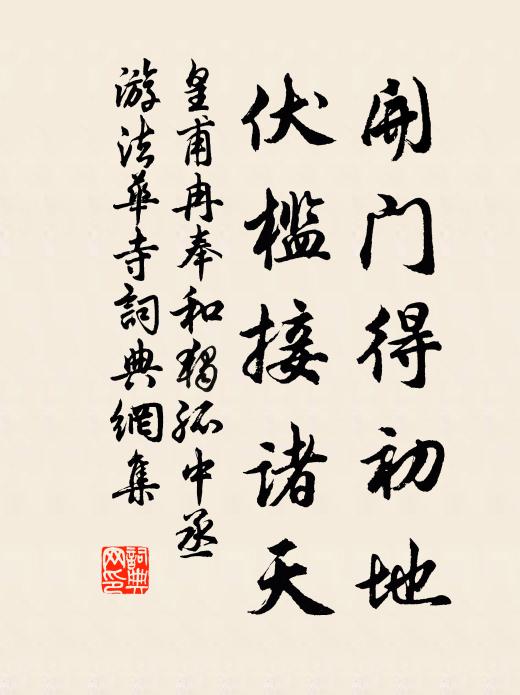 開门得初地
伏檻接诸天
皇甫冉奉和獨孤中丞
游法華寺詞典網集
詞典网印